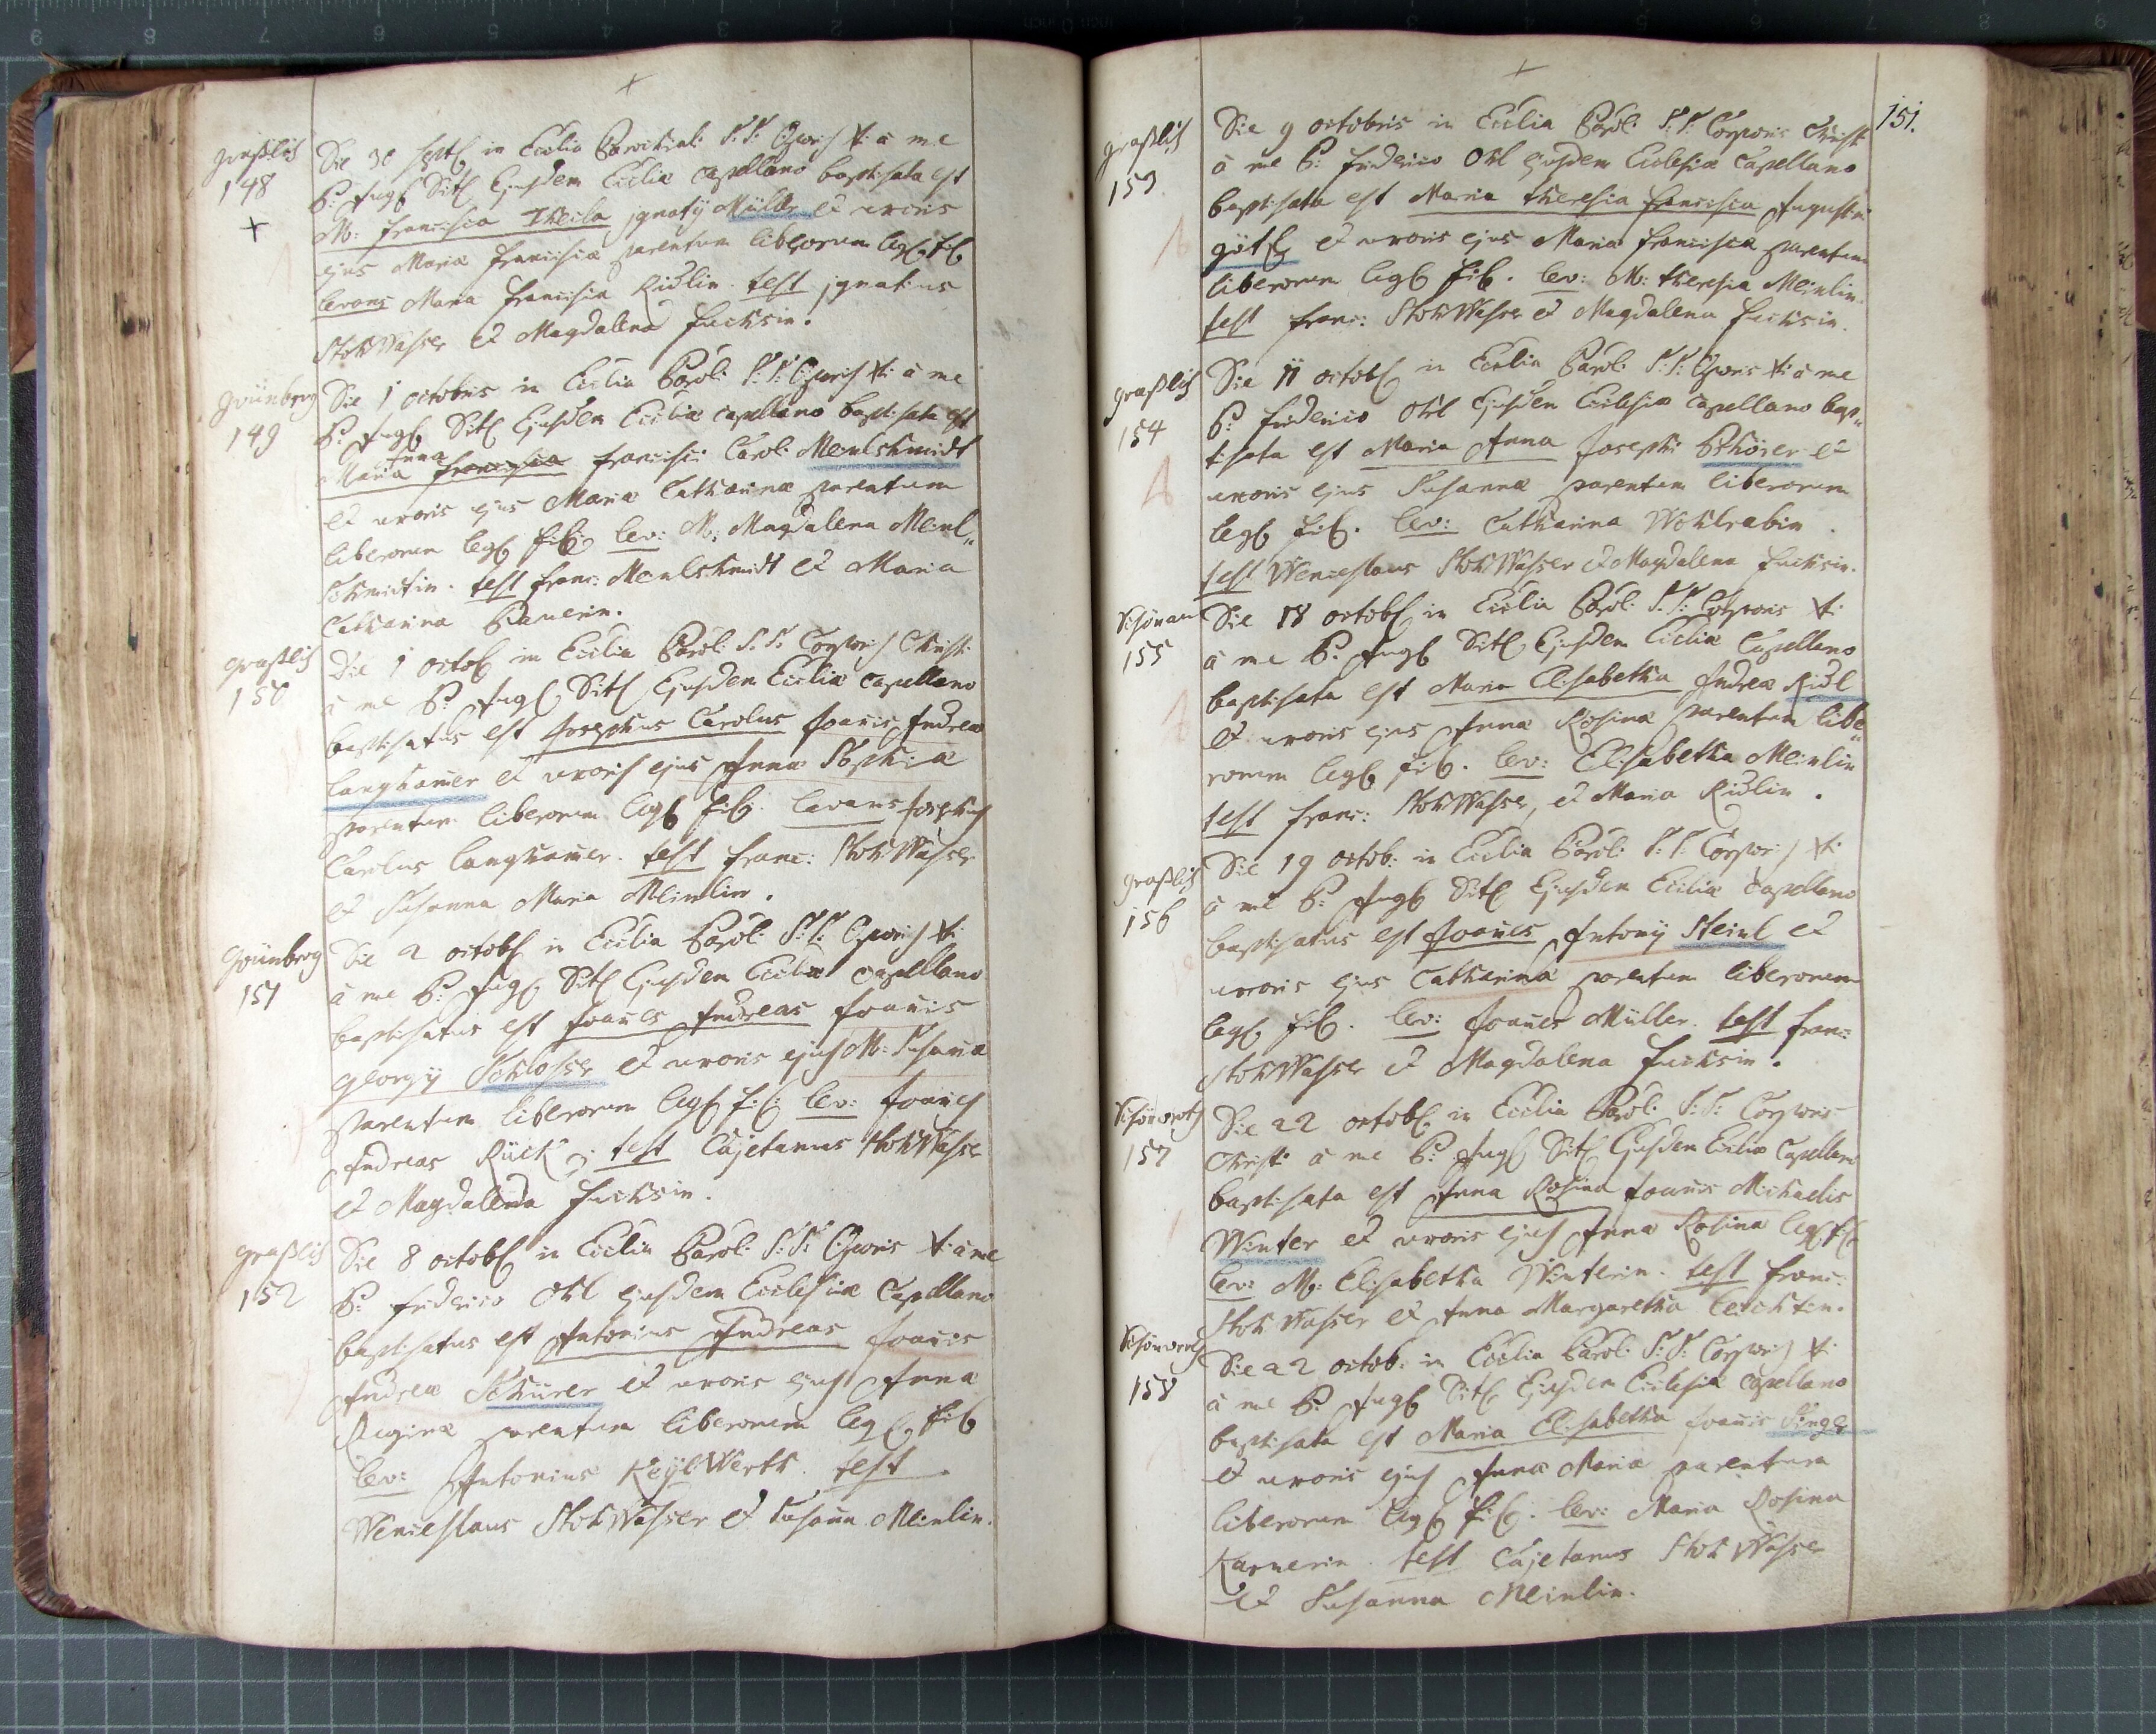 Graßlitz
148
Die 30 Sept in Ecclia Parochiali S.S. Cporis Xti a me
P: Aug Sitt Ejusdem Ecclia Capellano baptisata est
M: Francisca Thecla Ignatÿ Müller et uxoris
ejus Maria Francisca parentum liberorum leg fil
levans Maria Francisca Ridlin. test Ignatius
StohWasser et Magdalena Fuchsin.
Grünberg
149
Die 1 octobris in Ecclia Paroli S:S: Cporis Xti a me
P: Aug Sitt Ejusdem Ecclia Capellano baptisata est
Anna
Maria Francisca Francisci Caroli Meinlschmidt
et uxoris ejus Maria Catharina parentum
liberorum leg fil lev: M: Magdalena Meinl„
Schmidtin. test Franc: Meinlschmidt et Maria
Catharina Bauerin.
Graßlitz
150
Die 1 octob in Ecclia Paroli S:S: Corporis Christi
a me P: Aug Sitt Ejusdem Ecclia Capellano
baptisatus est Josephus Carolus Joanis Andrea
Langhamer et uxoris ejus Anna Sophia
parentum liberorum leg fil. levans Josephus
Carolus Langhamer. test Franc: StohWasser
et Susanna Maria Meinlin.
Grünberg
151
Die 2 octob in Ecclia Paroli S:S: Cporis Xti
a me P: Aug Sitt Ejusdem Ecclia Capellano
baptisatus est Joanes Andreas Joanis
Georgÿ Schlosser et uxoris ejus M: Susana
parentum liberorum leg fil: lev: Joanes
Andreas Rück. test Cajetanus StohWasser
et Magdalena Fuchsin.
Graßlitz
152
Die 8 octob in Ecclia Paroli S:S: Cporis Xti a me
P: Friderico Ohl ejusdem Ecclesiæ Capellano
baptisatus est Antonius Andreas Joanis
Andrea Schürer et uxoris ejus Anna
Regina parentum liberorum leg fil
lev: Antonius KeylWerth. test
Wenceslaus StohWasser et Susana Meinlin.
151.
Graßlitz
153
Die 9 octobris in Ecclia Paroli S:S: Corporis Christi
a me P: Friderico Ohl ejusdem Ecclesiæ Capellano
baptisata est Maria Theresia Francisca Augustini
Götz et uxoris ejus Maria Francisca parentum
liberorum leg fil. lev: M: Theresia Meinlin.
test Franc: StohWasser et Magdalena Fuchsin.
Graßlitz
154
Die 11 octob in Ecclia Paroli S:S: Cporis Xti a me
P: Friderico Ohl Ejusdem Ecclesiæ Capellano bap„
tisata est Maria Anna Josephi Pchorer et
uxoris ejus Susanna parentum liberorum
leg fil. lev: Catharina Wohlrabin.
test Wenceslaus StohWasser et Magdalena Fuchsin.
Schönau
155
Die 18 octob in Ecclia Paroli S:S: Corporis Xti
a me P: Aug Sitt Ejusdem Ecclia Capellano
baptisata est Maria Elisabetha Andrea Ridl
et uxoris ejus Anna Rosina parentum libe„
rorum leg fil. lev: Elisabetha Meinlin
test Franc: StohWasser, et Maria Ridlin.
Graßlitz
156
Die 19 octob: in Ecclia Paroli S:S: Corporis Xti
a me P: Aug Sitt Ejusdem Ecclia Capellano
baptisatus est Joanes Antonÿ Steinl et
uxoris ejus Catharina parentum liberorum
leg fil. lev: Joanes Müller. test Franc:
StohWasser et Magdalena Fuchsin.
Schönwerth
157
Die 22 octob in Ecclia Paroli S:S: Corporis
Christi a me P: Aug Sitt Ejusdem Ecclia Capellano
baptisata est Anna Rosina Joanis Michaelis
Winter et uxoris ejus Anna Rosina leg fil
lev: M: Elisabetha Winterin. test Franc:
StohWasser et Anna Margaretha Leichtin.
Schönwerth
158
Die 22 octob: in Ecclia Paroli S:S: Corporis Xti
a me P: Aug Sitt Ejusdem Ecclesiæ Capellano
baptisata est Maria Elisabetha Joanis Singer
et uxoris ejus Anna Maria parentum
liberorum leg fil. lev: Maria Rosina
Karnerin. test Cajetanus StohWasser
et Susanna Meinlin.